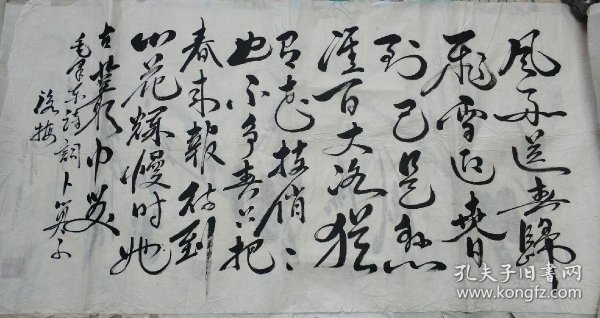 風雨送春歸
飛雪迎春
到已是懸
崖百丈冰猶
有花枝俏〻
也不争春只把
春来報待到
山花爛慢时她
在叢中笑
毛泽东诗詞卜算子
詠梅
孔夫子旧书网
www.kongfz.com